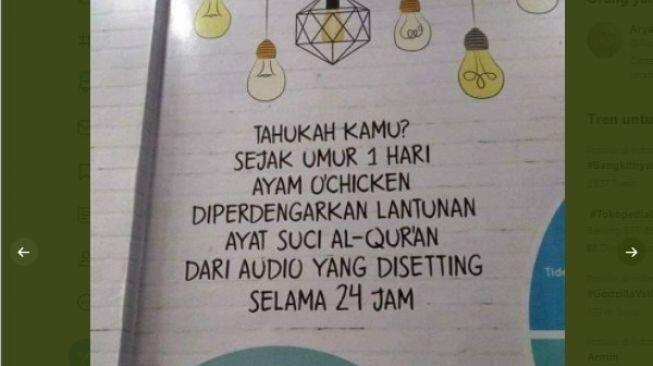 TAHUKAH KAMU?
SEJAK UMUR 1 HARI
AYAM O'CHICKEN
DIPERDENGARKAN LANTUNAN
AYAT SUCI AL-QUR'AN
DARI AUDIO YANG DISETTING
SELAMA 24 JAM
Tren untu
#Bangkitnya
#Tokopedia
#GodzillaVsK
Armin